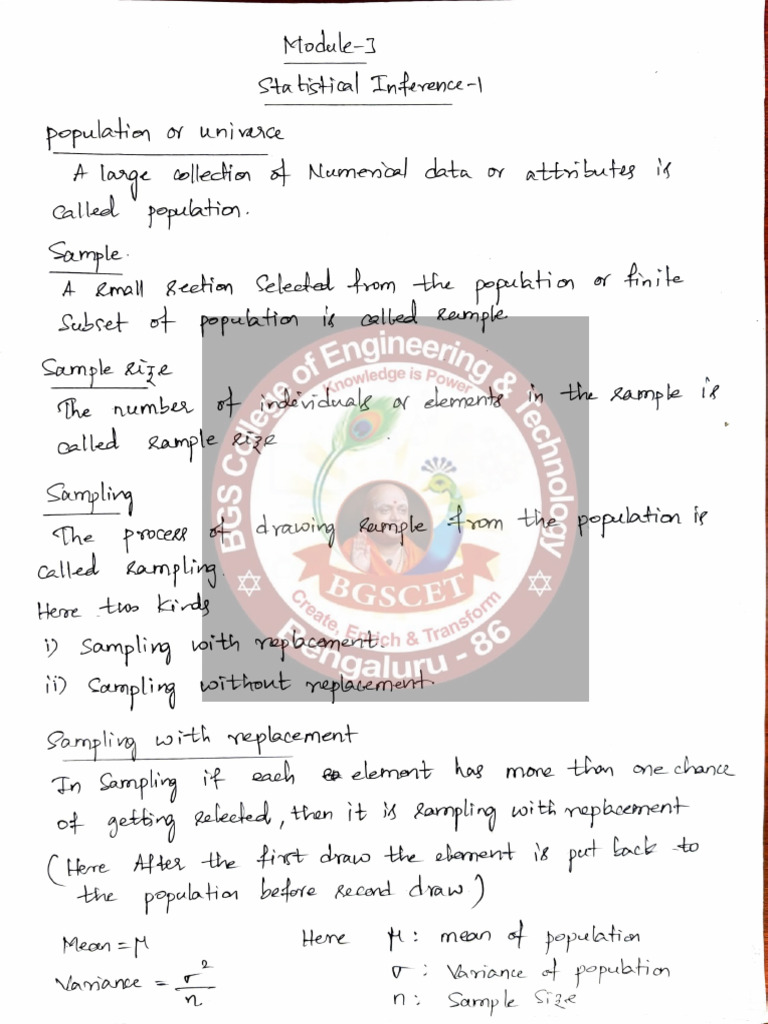 Module-3
Statistical Inference-1
population or universe
A large collection of Numerical data or attributes is
called population.
Sample.
A small section selected from the population or finite
subset of population is called sample
Sample size
The number of individuals or elements in the sample is
called sample size
Sampling
The process of drawing sample from the population is
called sampling.
Here two kinds
i) Sampling with replacement.
ii) Sampling without replacement.
Sampling with replacement
In sampling if each element has more than one chance
of getting selected, then it is sampling with replacement
(Here After the first draw the element is put back to
the population before second draw)
Mean = μ Here μ: mean of population
Variance = σ²/n σ: Variance of population
n: Sample size
BGS College of Engineering & Technology
Knowledge is Power
BGSCET
Create, Enrich & Transform
Bengaluru - 86